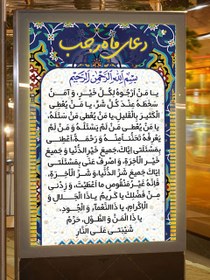 دعای ماه رجب
بِسْمِ اللهِ الرَّحْمنِ الرَّحیمِ
یا مَنْ اَرْجُوهُ لِکُلِّ خَیْرٍ، وَ آمَنُ
سَخَطَهُ عِنْدَ کُلِّ شَرٍّ، یا مَنْ یُعْطِی
الْکَثیرَ بِالْقَلیلِ یا مَنْ یُعْطی مَنْ سَئَلَهُ،
یا مَنْ یُعْطی مَنْ لَمْ یَسْئَلْهُ وَ مَنْ لَمْ
یَعْرِفْهُ تَحَنُّناً مِنْهُ وَ رَحْمَةً اَعْطِنی
بِمَسْئَلَتی اِیّاکَ جَمیعَ خَیْرِ الدُّنْیا وَ جَمیعَ
خَیْرِ الْآخِرَةِ، وَ اصْرِفْ عَنّی بِمَسْئَلَتی
اِیّاکَ جَمیعَ شَرِّ الدُّنْیا وَ شَرِّ الْآخِرَةِ،
فَاِنَّهُ غَیْرُ مَنْقُوصٍ ما اَعْطَیْتَ، وَ زِدْنی
مِنْ فَضْلِکَ یا کَریمُ یا ذَا الْجَلالِ وَ
الْاِکْرامِ، یا ذَا النَّعْماءِ وَ الْجُودِ،
یا ذَا الْمَنِّ وَ الطَّوْلِ، حَرِّمْ
شَیْبَتی عَلَی النّارِ